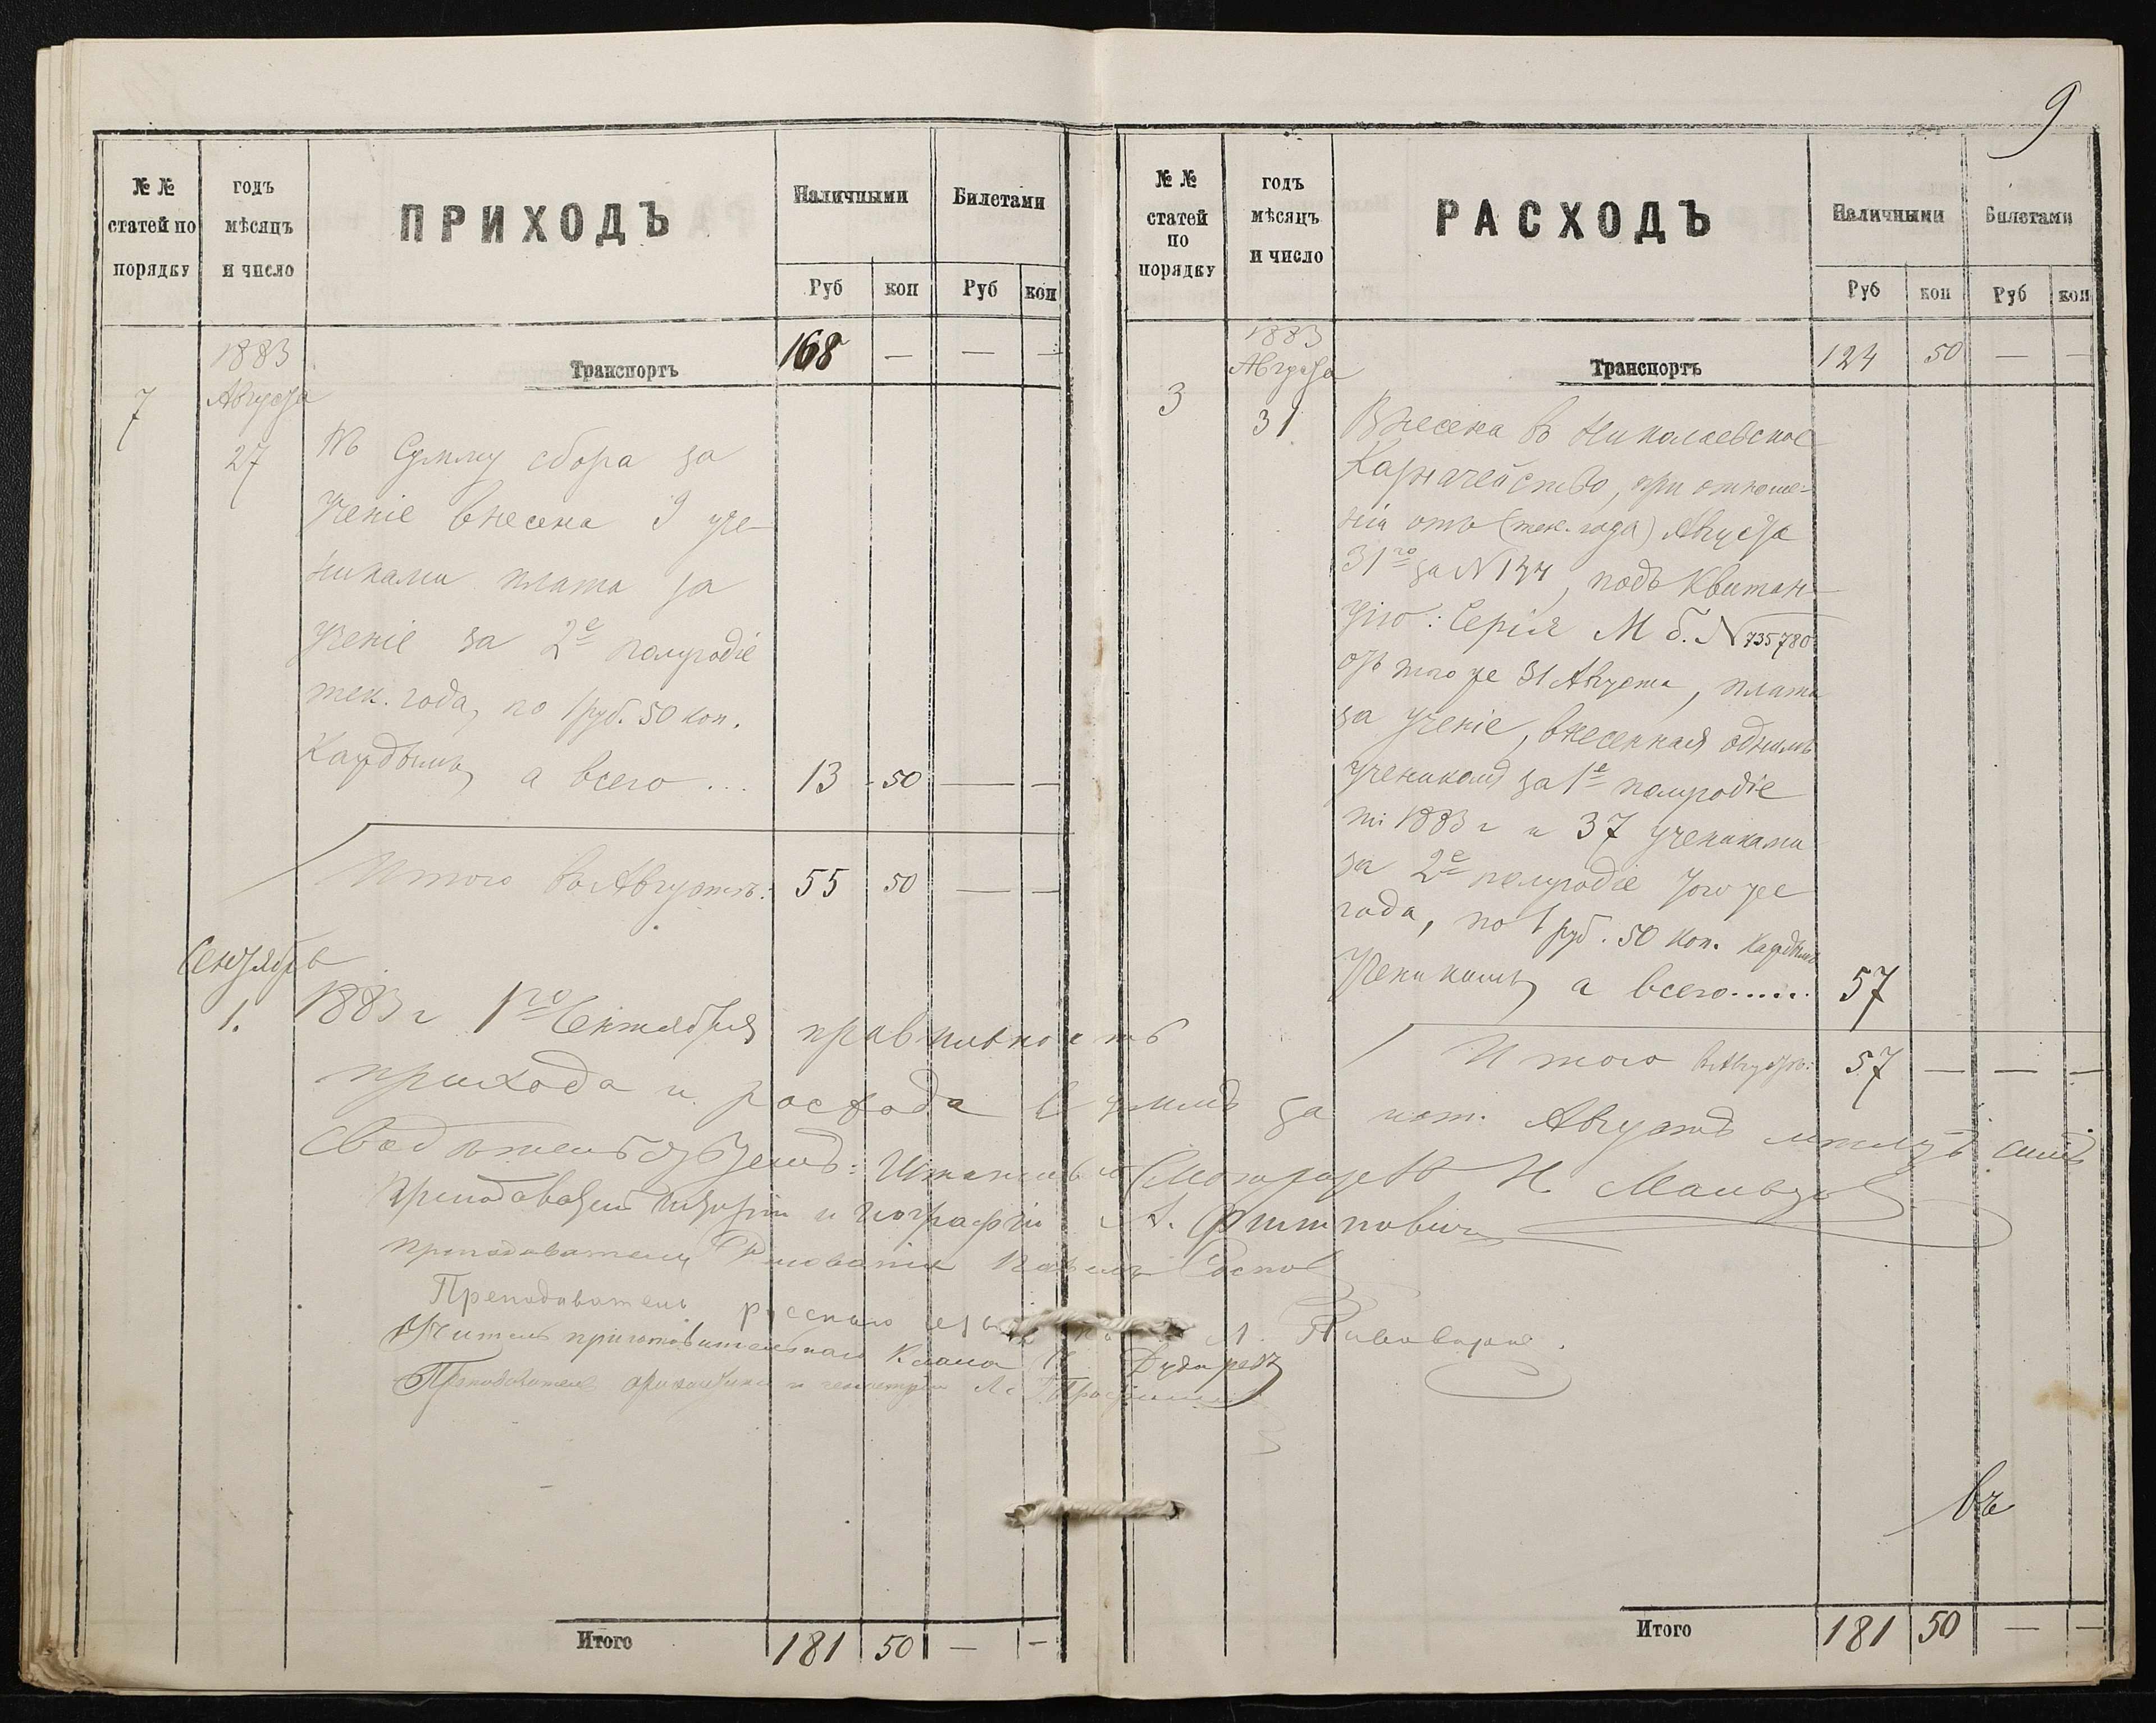 9
№ №
статей по
порядку
годъ
мѣсяцъ
и число
ПРИХОДЪ
Наличными
Билетами
Руб коп Руб коп
1883
Транспортъ 168 — — —
7 Августа
27 Въ Сумму сбора за
ученіе внесена 9 уче-
никами плата за
ученіе за 2е полугодіе
тек. года, по 1 руб. 50 коп.
Каждымъ, а всего ... 13 50 — —
Итого въ Августѣ: 55 50 — —
Сентябрь
1. 1883 г 1го Сентября правильность
прихода и расхода суммъ за ист. Августъ мѣсяцъ симъ
Свидѣтельствуемъ: Штатный Смотритель И. Мальцов
Преподаватель Исторіи и Географіи А. Филиповичъ
преподаватель Рисованія Павелъ
Преподаватель русскаго языка Л.
Учитель приготовительнаго Класса
Преподаватель ариөметики и геометріи
Итого 181 50 — —
№ №
статей
по
порядку
годъ
мѣсяцъ
и число
РАСХОДЪ
Наличными
Билетами
Руб коп Руб коп
1883
Августа
Транспортъ 124 50 — —
3 31 Внесена въ Николаевское
Казначейство, при отноше-
ніи отъ (тек. года) Августа
31го за N 144, подъ Квитан-
цію: Серія М б. N 735780
отъ того же 31 Августа, плата
за ученіе, внесенная однимъ
ученикомъ за 1е полугодіе
1883 г и 37 учениками
за 2е полугодіе того же
года, по 1 руб. 50 коп. каждымъ
Ученикомъ, а всего...... 57
Итого въ Августѣ: 57 — — —
Итого 181 50 — —